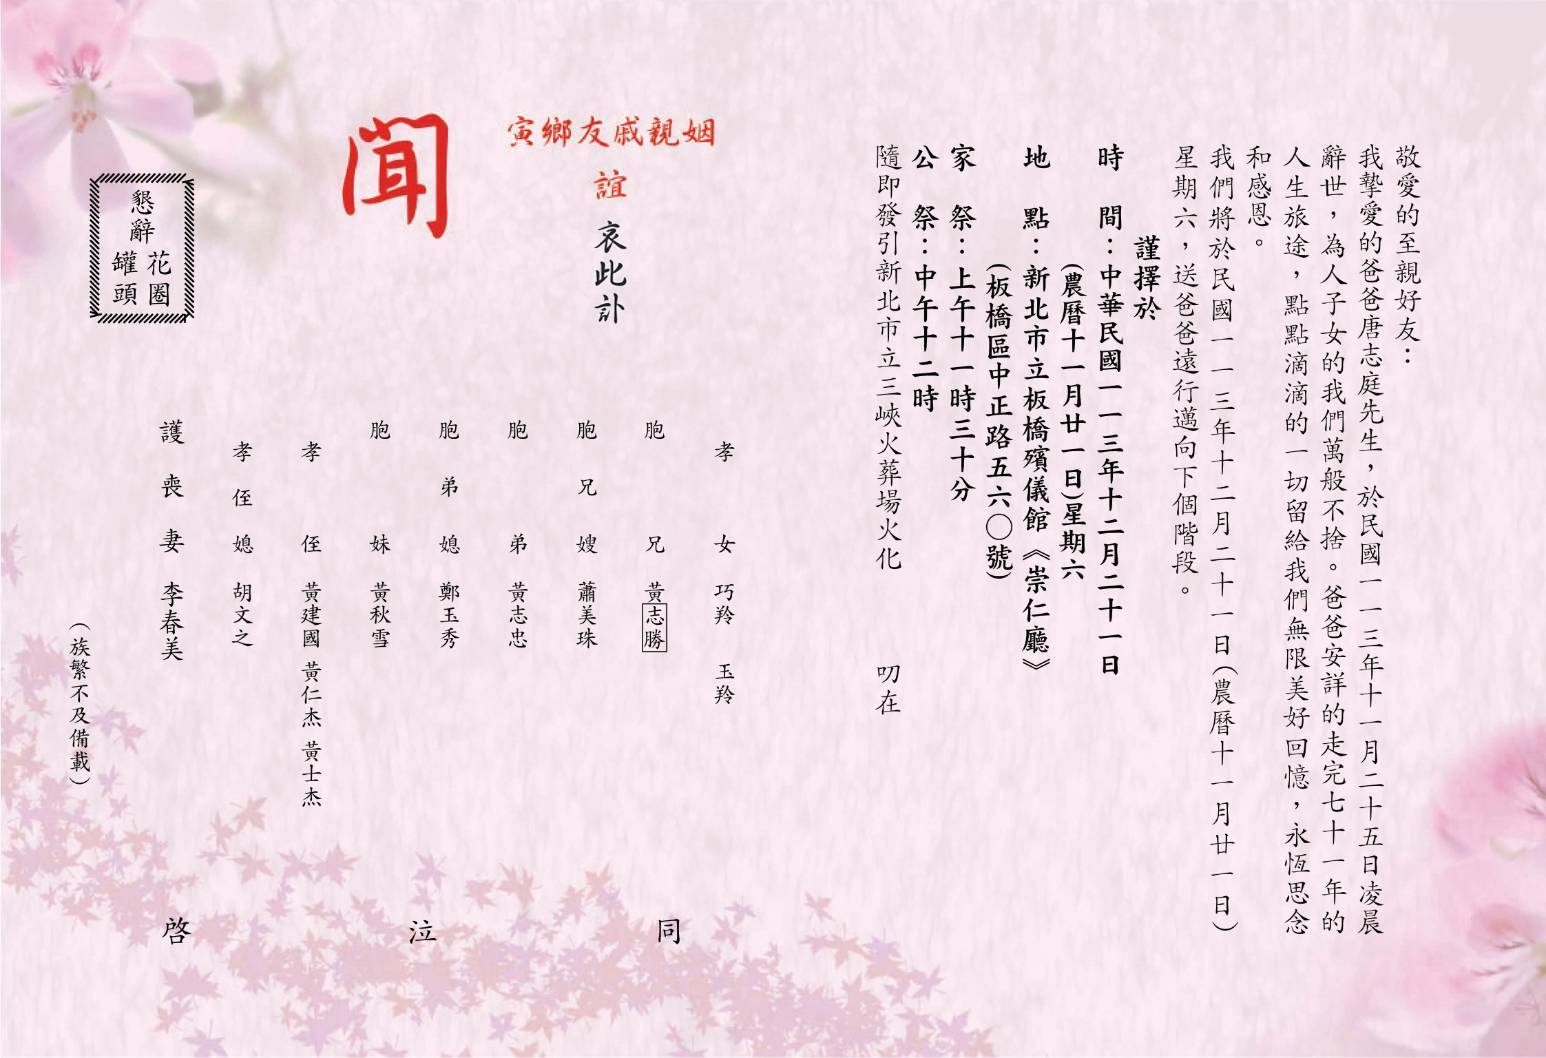 敬愛的至親好友：
我摯愛的爸爸唐志庭先生，於民國一一三年十一月二十五日凌晨
辭世，為人子女的我們萬般不捨。爸爸安詳的走完七十一年的
人生旅途，點點滴滴的一切留給我們無限美好回憶，永恆思念
和感恩。
我們將於民國一一三年十二月二十一日(農曆十一月廿一日)
星期六，送爸爸遠行邁向下個階段。
謹擇於
時間：中華民國一一三年十二月二十一日
(農曆十一月廿一日)星期六
地點：新北市立板橋殯儀館《崇仁廳》
(板橋區中正路五六〇號)
家祭：上午十一時三十分
公祭：中午十二時
隨即發引新北市立三峽火葬場火化 叨在
姻親戚友鄉寅
誼
哀此訃
聞
孝女 巧羚 玉羚
胞兄 黃志勝
胞兄嫂 蕭美珠
胞弟 黃志忠
胞弟媳 鄭玉秀
胞妹 黃秋雪
孝侄 黃建國 黃仁杰 黃士杰
孝侄媳 胡文之
護喪妻 李春美
同泣啓
(族繁不及備載)
懇辭
花圈
罐頭